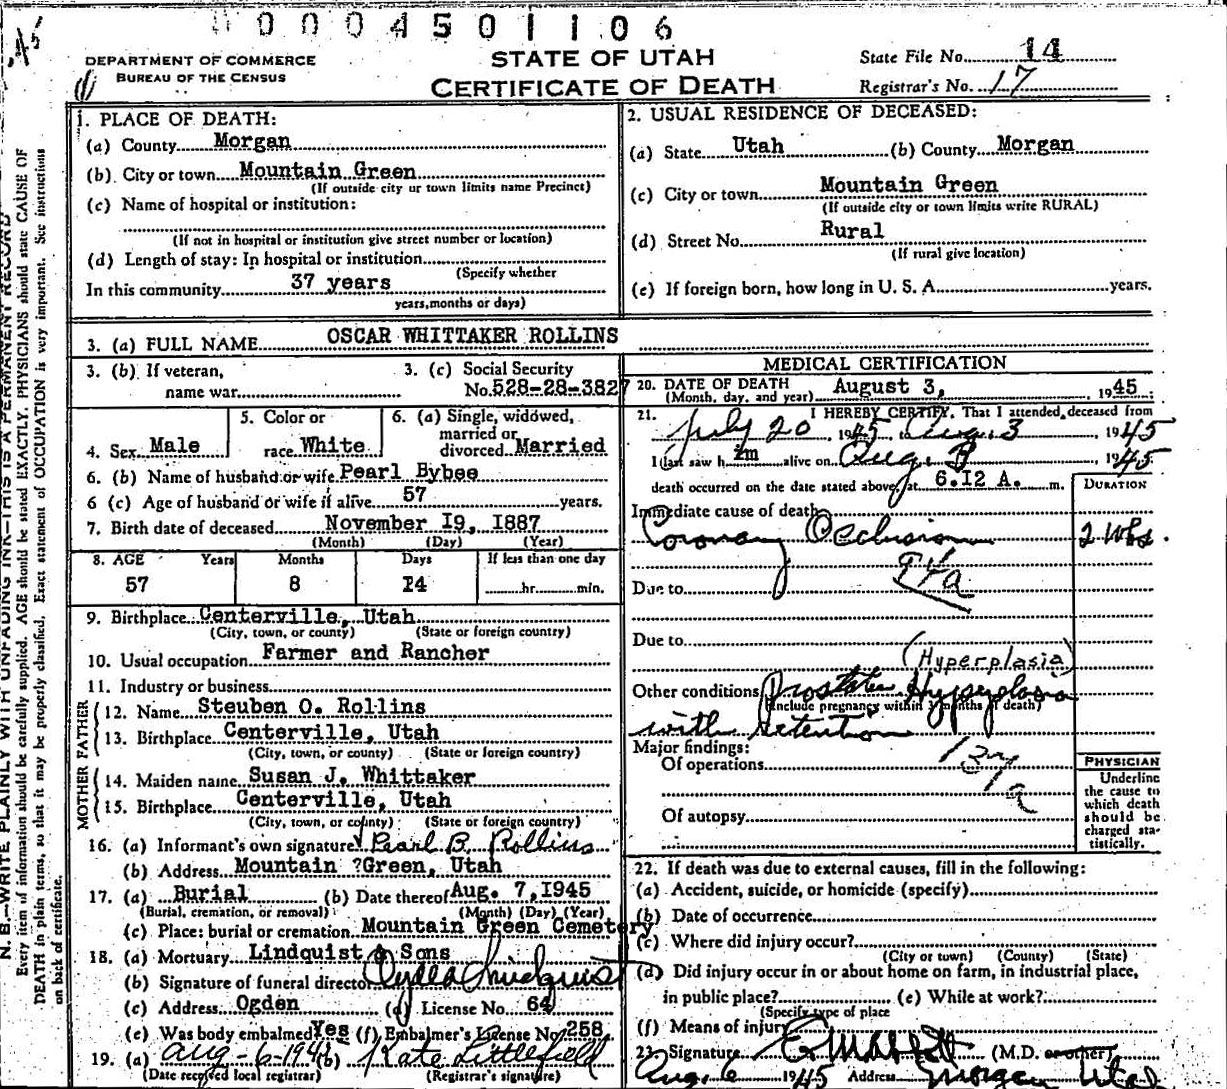 0004501106
DEPARTMENT OF COMMERCE
BUREAU OF THE CENSUS
STATE OF UTAH
CERTIFICATE OF DEATH
State File No. 14
Registrar's No. 17
N. B.—WRITE PLAINLY WITH UNFADING INK—THIS IS A PERMANENT RECORD
Every item of information should be carefully supplied. AGE should be stated EXACTLY. PHYSICIANS should state CAUSE OF
DEATH in plain terms, so that it may be properly classified. Exact statement of OCCUPATION is very important. See instructions
on back of certificate.
1. PLACE OF DEATH:
(a) County Morgan
(b) City or town Mountain Green
(If outside city or town limits name Precinct)
(c) Name of hospital or institution:
(If not in hospital or institution give street number or location)
(d) Length of stay: In hospital or institution
(Specify whether
In this community 37 years
years, months or days)
2. USUAL RESIDENCE OF DECEASED:
(a) State Utah (b) County Morgan
(c) City or town Mountain Green
(If outside city or town limits write RURAL)
(d) Street No. Rural
(If rural give location)
(e) If foreign born, how long in U. S. A. years.
3. (a) FULL NAME OSCAR WHITTAKER ROLLINS
3. (b) If veteran,
name war
3. (c) Social Security
No. 528-28-3827
4. Sex Male
5. Color or
race White
6. (a) Single, widowed,
married or
divorced Married
6. (b) Name of husband or wife Pearl Bybee
6 (c) Age of husband or wife if alive 57 years.
7. Birth date of deceased November I9, I887
(Month) (Day) (Year)
8. AGE Years Months Days If less than one day
57 8 14 hr. min.
9. Birthplace Centerville, Utah
(City, town, or county) (State or foreign country)
10. Usual occupation Farmer and Rancher
11. Industry or business
FATHER
12. Name Steuben O. Rollins
13. Birthplace Centerville, Utah
(City, town, or county) (State or foreign country)
MOTHER
14. Maiden name Susan J. Whittaker
15. Birthplace Centerville, Utah
(City, town, or county) (State or foreign country)
16. (a) Informant's own signature Pearl B. Rollins
(b) Address Mountain ?Green, Utah
17. (a) Burial (b) Date thereof Aug. 7, I945
(Burial, cremation, or removal) (Month) (Day) (Year)
(c) Place: burial or cremation Mountain Green Cemetery
18. (a) Mortuary Lindquist & Sons
(b) Signature of funeral director Lindquist
(c) Address Ogden (d) License No. 64
(e) Was body embalmed Yes (f) Embalmer's License No. 258
19. (a) Aug-6-1945 (b) Kate Littlefield
(Date received local registrar) (Registrar's signature)
MEDICAL CERTIFICATION
20. DATE OF DEATH August 3, 1945
(Month, day, and year)
21. I HEREBY CERTIFY, That I attended deceased from
July 20, 1945, to Aug. 3 1945
I last saw h im alive on Aug. 3, 1945
death occurred on the date stated above, at 6.I2 A. m.
DURATION
Immediate cause of death
Coronary Occlusion 2 wks.
94a
Due to
Due to
(Hyperplasia)
Other conditions Prostatic Hyperplasia
(Include pregnancy within 3 months of death)
with retention
Major findings:
Of operations
137a
Of autopsy
PHYSICIAN
Underline
the cause to
which death
should be
charged sta-
tistically.
22. If death was due to external causes, fill in the following:
(a) Accident, suicide, or homicide (specify)
(b) Date of occurrence
(c) Where did injury occur?
(City or town) (County) (State)
(d) Did injury occur in or about home on farm, in industrial place,
in public place? (e) While at work?
(Specify type of place
(f) Means of injury
23. Signature (M.D. or other)
Aug. 6 1945 Address Morgan Utah